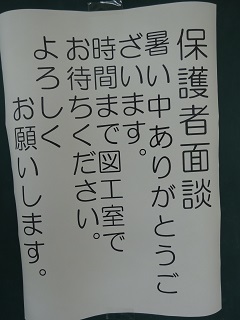 保護者面談
暑い中ありがとうご
ざいます。
時間まで図工室で
お待ちください。
よろしく
お願いします。